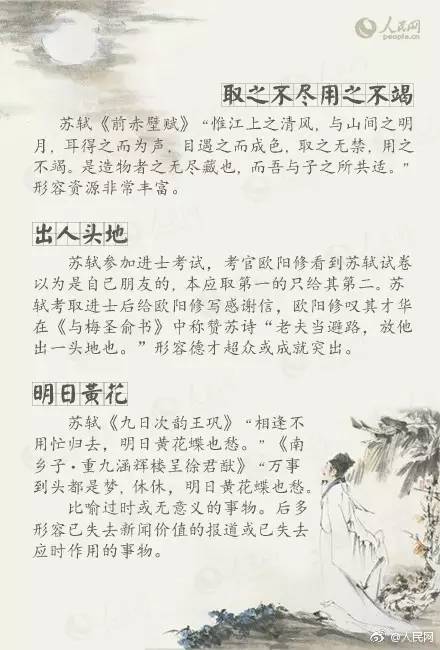 人民网
people.cn
取之不尽用之不竭
苏轼《前赤壁赋》“惟江上之清风，与山间之明
月，耳得之而为声，目遇之而成色，取之无禁，用之
不竭。是造物者之无尽藏也，而吾与子之所共适。”
形容资源非常丰富。
出人头地
苏轼参加进士考试，考官欧阳修看到苏轼试卷
以为是自己朋友的，本应取第一的只给其第二。苏
轼考取进士后给欧阳修写感谢信，欧阳修叹其才华
在《与梅圣俞书》中称赞苏诗“老夫当避路，放他
出一头地也。”形容德才超众或成就突出。
明日黄花
苏轼《九日次韵王巩》“相逢不
用忙归去，明日黄花蝶也愁。”《南
乡子·重九涵辉楼呈徐君猷》“万事
到头都是梦，休休，明日黄花蝶也愁。
比喻过时或无意义的事物。后多
形容已失去新闻价值的报道或已失去
应时作用的事物。
@人民网